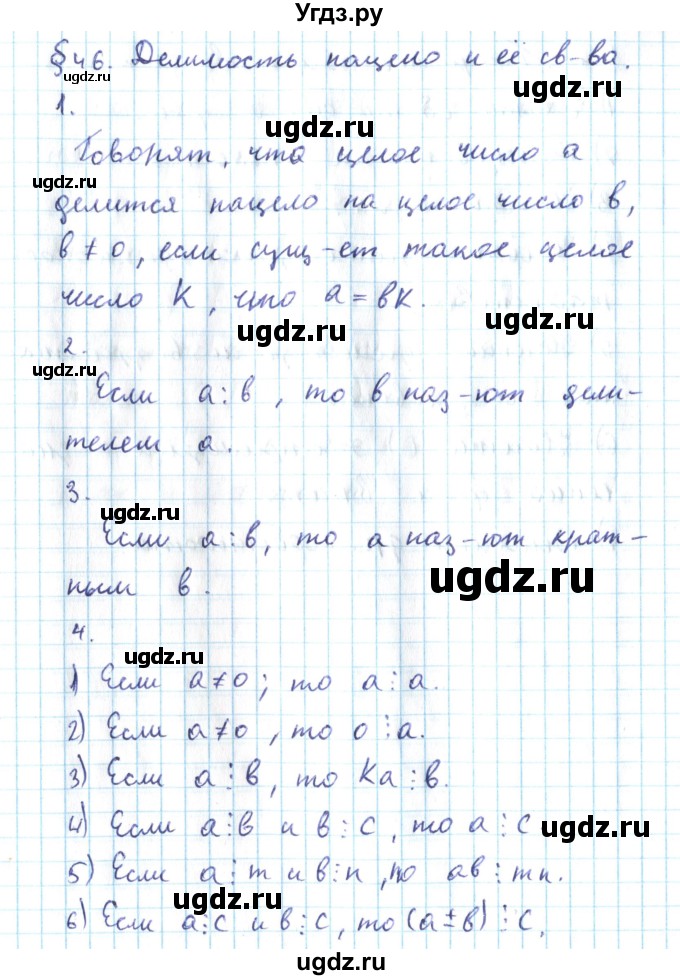 Угдз.ру
§46. Делимость нацело и её св-ва.
1.
ugdz.ru
Говорят, что целое число a
ugdz.ru
делится нацело на целое число в,
в ≠ 0, если сущ-ет такое целое
число K, что a = вK.
ugdz.ru
2.
ugdz.ru
Если a ⋮ в, то в наз-ют дели-
телем a.
3.
ugdz.ru
Если a ⋮ в, то a наз-ют крат-
ugdz.ru
ным в.
4.
ugdz.ru
1) Если a ≠ 0; то a ⋮ a.
2) Если a ≠ 0, то 0 ⋮ a.
3) Если a ⋮ в, то Ka ⋮ в.
4) Если a ⋮ в и в ⋮ c, то a ⋮ c
ugdz.ru
5) Если a ⋮ m и в ⋮ n, то aв ⋮ mn.
ugdz.ru
6) Если a ⋮ c и в ⋮ c, то (a ± в) ⋮ c,
ugdz.ru